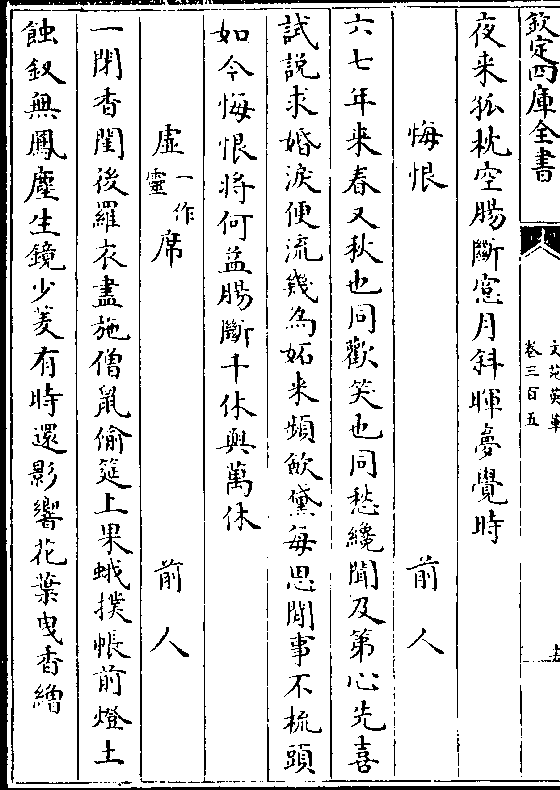 欽定四庫全書
文苑英華
卷三百五
夜来孤枕空腸斷窓月斜暉夢覺時
悔恨 前人
六七年来春又秋也同歡笑也同愁纔聞及第心先喜
試説求婚淚便流幾為妬来頻斂黛每思閒事不梳頭
如今悔恨将何益腸斷千休與萬休
虚一作靈席 前人
一閉香閨後羅衣盡施僧鼠偷筵上果蛾撲帳前燈土
蝕釵無鳳塵生鏡少菱有時還影響花葉曳香繒